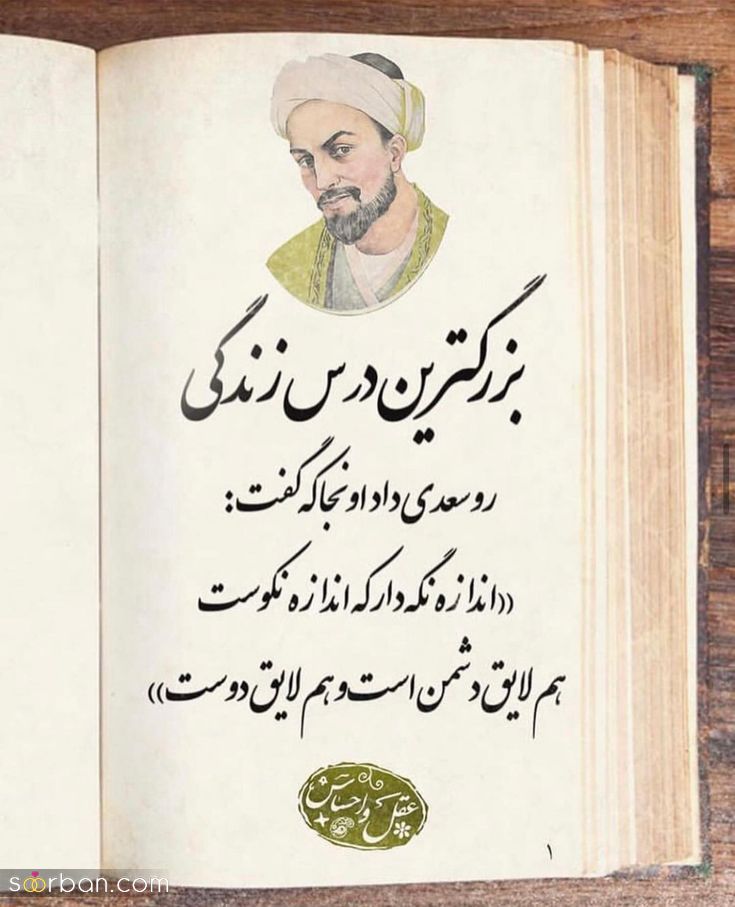 بزرگترین درس زندگی
رو سعدی داد اونجا که گفت:
((اندازه نگه دار که اندازه نکوست
هم لایق دشمن است و هم لایق دوست))
عقل و احساس
۱
soorban.com